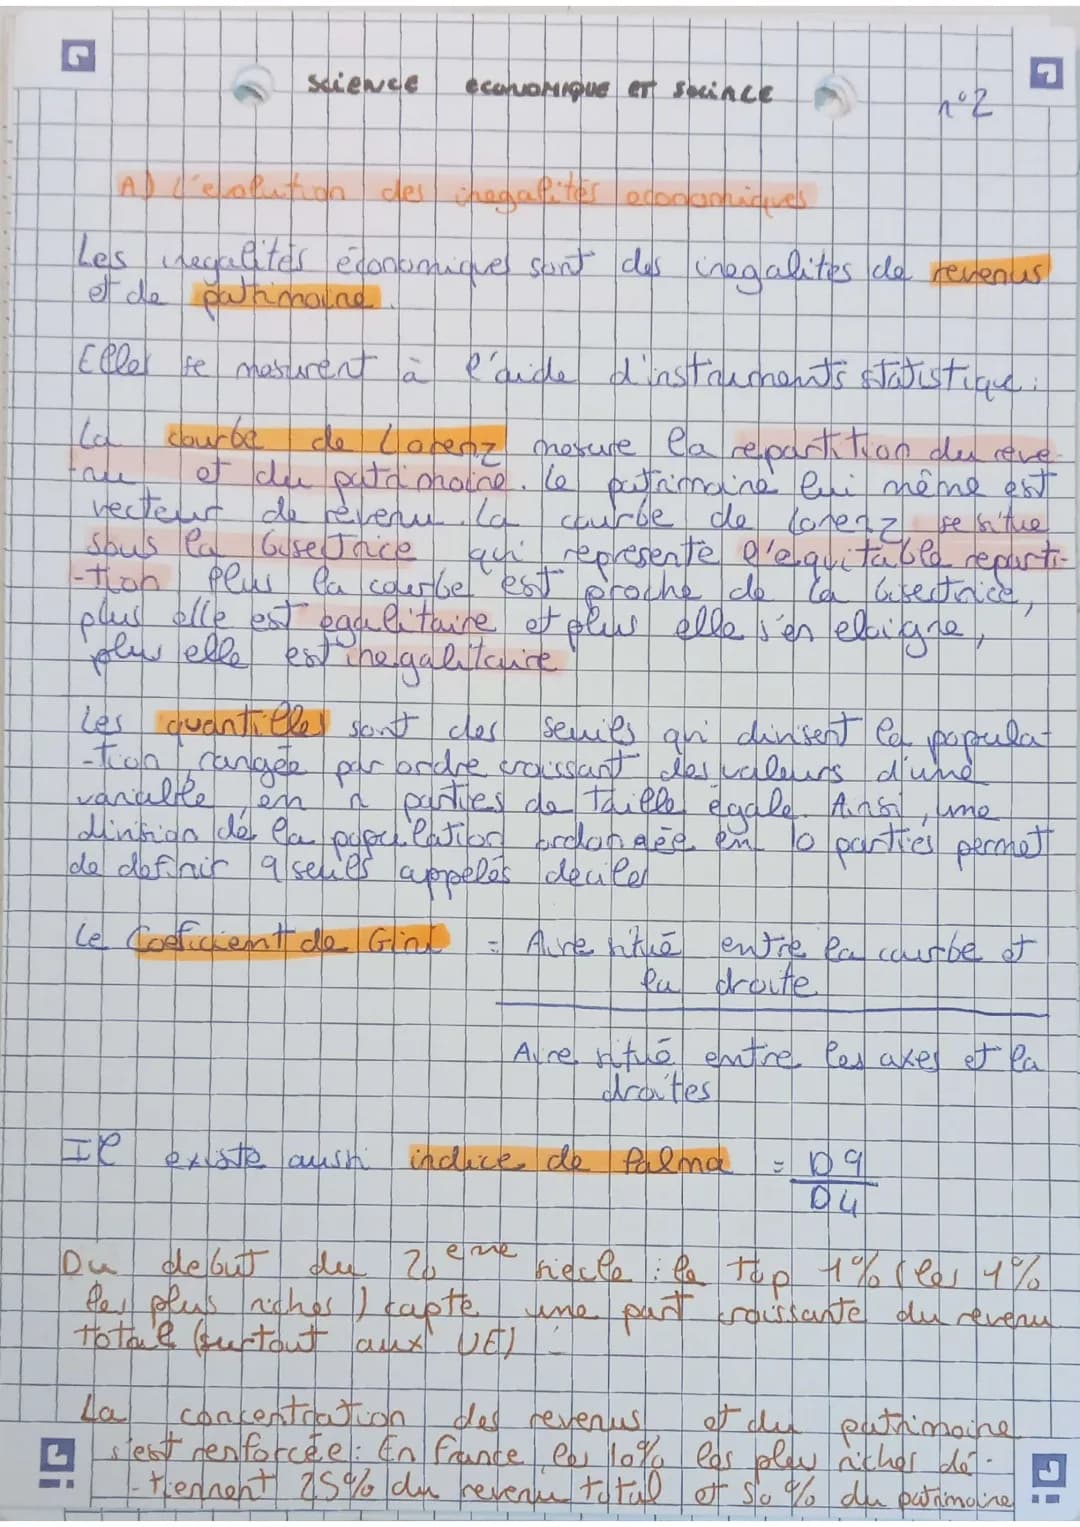 science economique et socince
n°2
A) L'evolution des inegalités economiques
Les inegalités économiques sont des inegalites de revenus
et de patrimoine.
Elles se mesurent à l'aide d'instruments statistique :
La courbe de Lorenz mesure la repartition du reve-
nu et du patrimoine. Le patrimoine lui même est
vecteur de revenu. La courbe de Lorenz se situe
sous la bisectrice qui represente l'equitable reparti-
-tion Plus la courbe est proche de la bisectrice,
plus elle est egalitaire et plus elle s'en eloigne,
plus elle est inegalitaire
Les quantilles sont des seuils qui divisent la popula-
-tion, rangée par ordre croissant des valeurs d'une
variable, en n parties de taille égale. Ainsi, une
division de la population ordonnée en 10 parties permet
de definir 9 seuils appelés deciles
Le Coeficient de Gini = Aire situé entre la courbe et
la droite
Aire situé entre les axes et la
droites
Il existe aussi indice de Palma = D9
D4
Du debut du 20eme siecle : le top 1% (les 1%
les plus riches) capte une part croissante du revenu
total (surtout aux UE)
La concentration des revenus et du patrimoine
s'est renforcée : En France les 10% les plus riches dé-
-tiennent 25% du revenu total et 50% du patrimoine